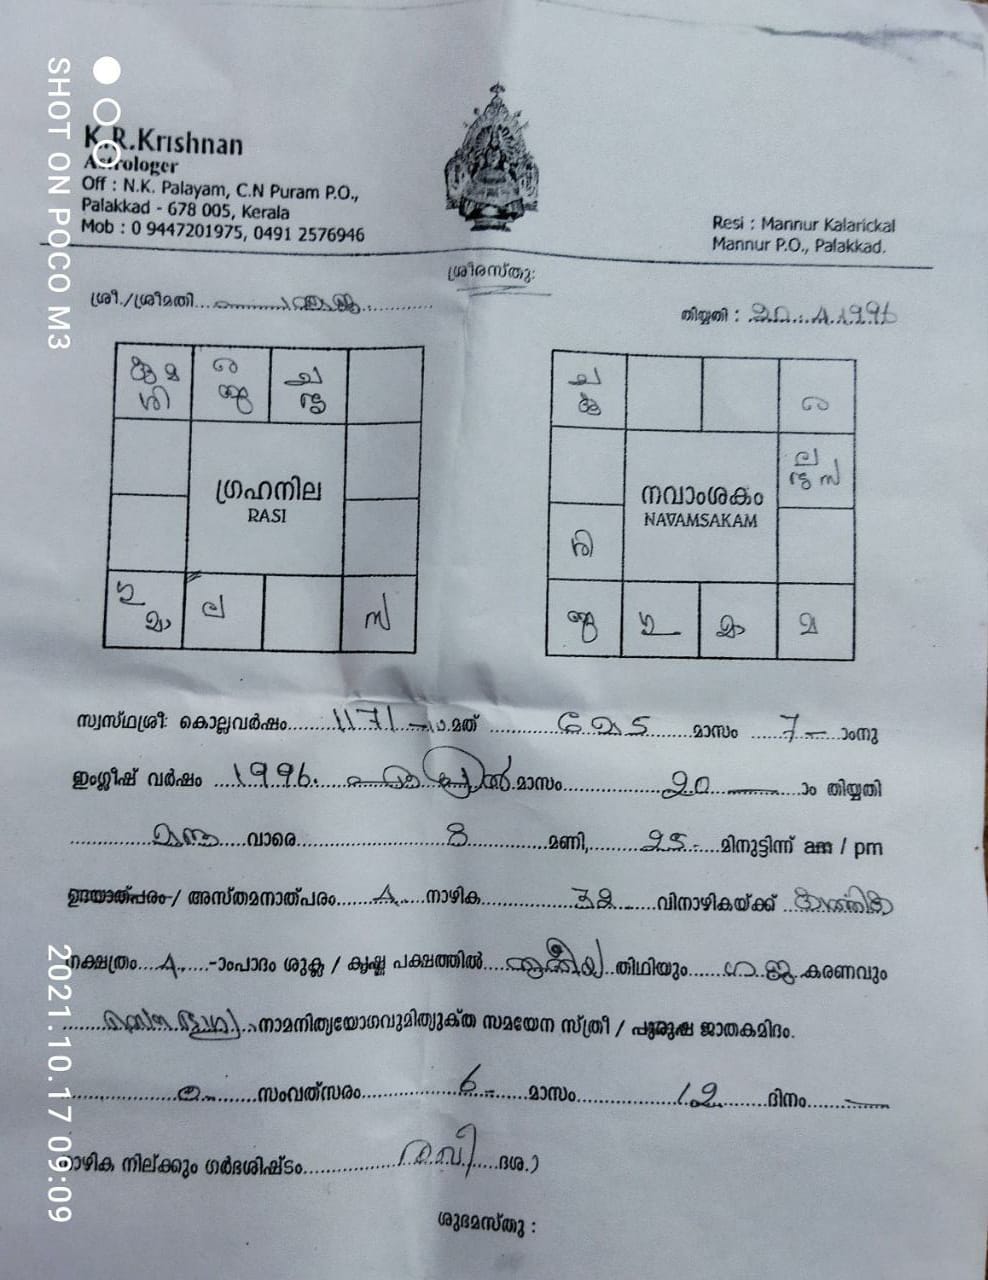 K.R.Krishnan
Astrologer
Off : N.K. Palayam, C.N Puram P.O.,
Palakkad - 678 005, Kerala
Mob : 0 9447201975, 0491 2576946
Resi : Mannur Kalarickal
Mannur P.O., Palakkad.
ശ്രീരസ്തു:
ശ്രീ./ശ്രീമതി
തിയ്യതി : 20.4.1996
ശി
ച
ഗ്രഹനില
RASI
ല
സ
ച
നവാംശകം
NAVAMSAKAM
ല
സ
ശി
മ
സ്വസ്ഥശ്രീ: കൊല്ലവർഷം 1171 മത് മേട മാസം 7 ാംനു
ഇംഗ്ലീഷ് വർഷം 1996 ഏപ്രിൽ മാസം 20 ാം തിയ്യതി
മന്ദ വാരെ 8 മണി, 25 മിനുട്ടിന്ന് am / pm
ഉദയാത്പരം / അസ്തമനാത്പരം 4 നാഴിക 38 വിനാഴികയ്ക്ക് കാർത്തിക
നക്ഷത്രം 4 -ാംപാദം ശുക്ല / കൃഷ്ണ പക്ഷത്തിൽ തൃതീയ തിഥിയും ഗജ കരണവും
സൌഭാഗ്യ നാമനിത്യയോഗവുമിത്യുക്ത സമയേന സ്ത്രീ / പുരുഷ ജാതകമിദം.
സംവത്സരം 6 മാസം 12 ദിനം
നാഴിക നില്ക്കും ഗർഭശിഷ്ടം രവി ദശ.)
ശുഭമസ്തു :
SHOT ON POCO M3
2021.10.17 09:09